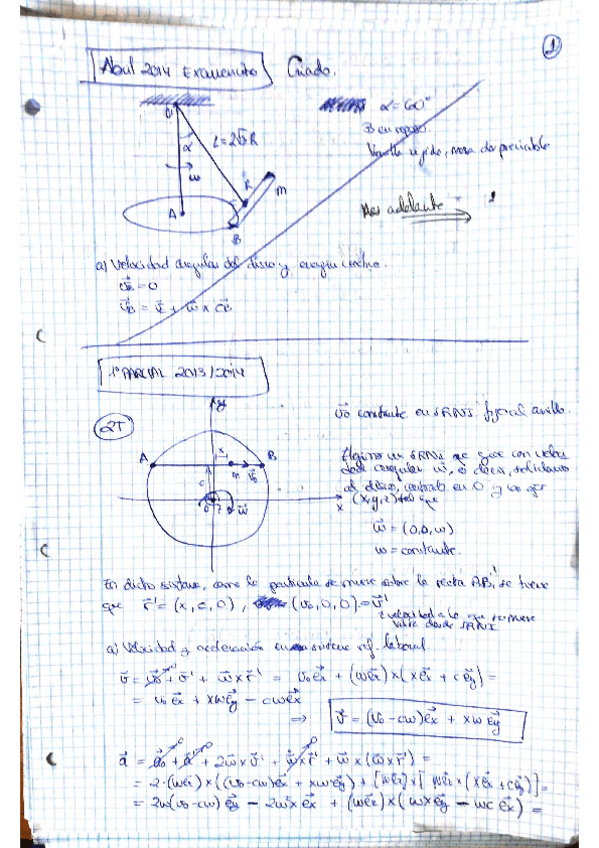 1
Abril 2014 Examencito Criado.
O
α = 60°
α
L = 2√3 R
B en reposo.
Varilla rígida, masa despreciable
ω
R
M
A
B
Más adelante
a) Velocidad angular del disco y energía cinética.
v⃗_B = 0
v⃗_B = v⃗_C + ω⃗ × CB⃗
1º PARCIAL 2013/2014
2T
y
v⃗₀ constante en SRNI fijo al anillo.
A
x
B
m
v⃗₀
C
O
ω⃗
x
Elegimos un SRNI que gire con veloci
dad angular ω⃗, es decir, solidario
al disco, centrado en O y con ejes
(x,y,z) tal que
ω⃗ = (0,0,ω)
ω = constante.
En dicho sistema, como la partícula se mueve sobre la recta AB, se tiene
que r⃗' = (x, c, 0), (v₀, 0, 0) = v⃗'
velocidad a la que se mueve
desde SRNI
a) Velocidad y aceleración en sistema ref. laboral.
v⃗ = v⃗₀ + v⃗' + ω⃗ × r⃗' = v₀ e⃗x + (ω e⃗z) × (x e⃗x + c e⃗y) =
= v₀ e⃗x + xω e⃗y − cω e⃗x
⇒ v⃗ = (v₀ − cω) e⃗x + xω e⃗y
a⃗ = a⃗₀ + a⃗' + 2ω⃗ × v⃗' + ω⃗ × r⃗' + ω⃗ × (ω⃗ × r⃗') =
= 2·(ω e⃗z) × ((v₀ − cω) e⃗x + xω e⃗y) + [ω e⃗z] × [ω e⃗z × (x e⃗x + c e⃗y)] =
= 2ω(v₀ − cω) e⃗y − 2ω²x e⃗x + (ω e⃗z) × (ωx e⃗y − ωc e⃗x) =